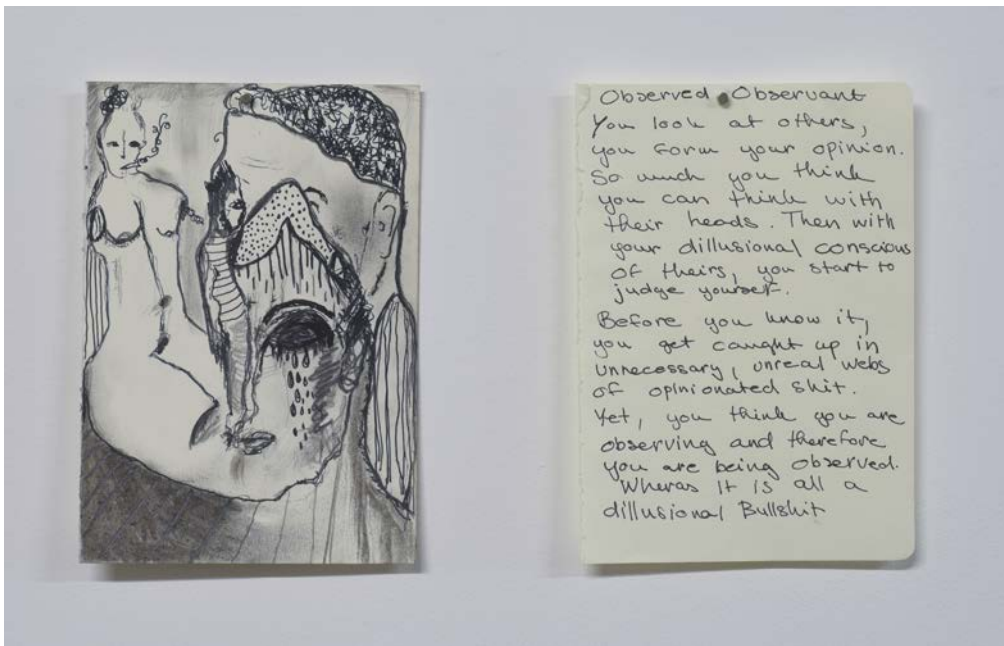 Observed Observant
You look at others,
you form your opinion.
So much you think
you can think with
their heads. Then with
your dillusional conscious
of theirs, you start to
judge yourself.
Before you know it,
you get caught up in
unnecossary, unreal webs
of opinionated shit.
Yet, you think you are
observing and therefore
you are being observed.
Wheras it is all a
dillusional Bullshit